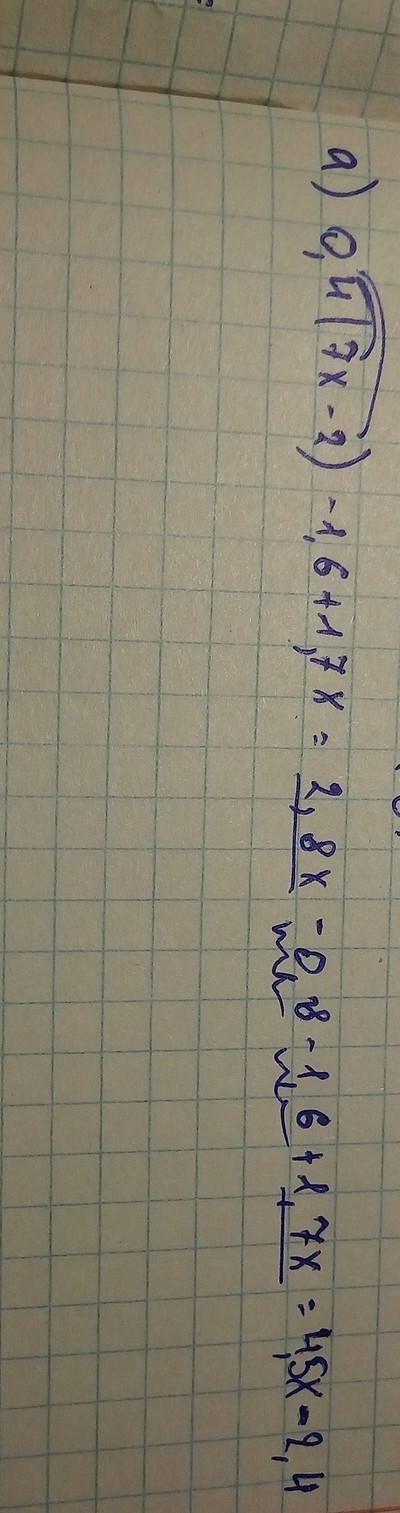 а) 0,4(7x-2)-1,6+1,7x=2,8x-0,8-1,6+1,7x=4,5x-2,4